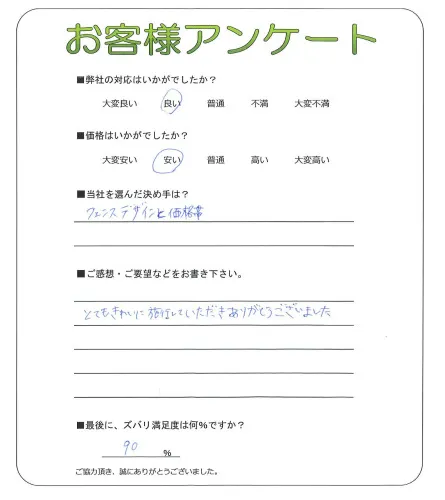 お客様アンケート
■弊社の対応はいかがでしたか？
大変良い 良い 普通 不満 大変不満
■価格はいかがでしたか？
大変安い 安い 普通 高い 大変高い
■当社を選んだ決め手は？
フェンスデザインと価格帯
■ご感想・ご要望などをお書き下さい。
とてもきれいに施行していただきありがとうございました
■最後に、ズバリ満足度は何%ですか？
90 %
ご協力頂き、誠にありがとうございました。